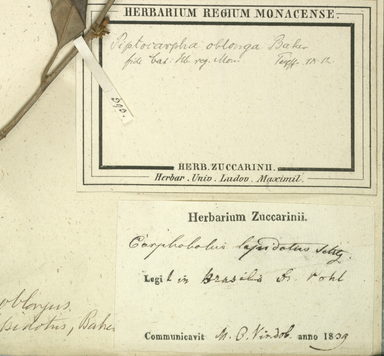 HERBARIUM REGIUM MONACENSE.
Piptocarpha oblonga Baker
fide Cat. Hb. reg. Mon.
HERB. ZUCCARINII.
Herbar. Univ. Ludov. Maximil.
Herbarium Zuccarinii.
Carphobolus lepidotus Schtz
Legit in Brasilia Dr. Pohl
Communicavit M. C. Vindob. anno 1839
oblongus.
pidotus, Baker